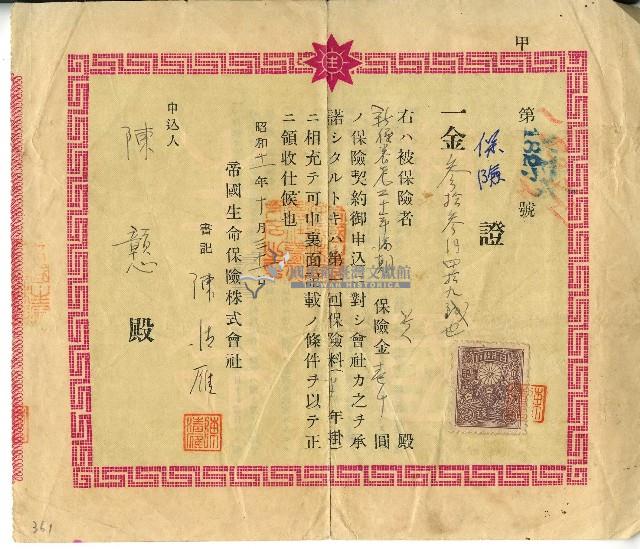 甲
第 號
保險
證
一金參拾參円四拾九錢也
右ハ被保險者 殿
保險金壱千圓
ノ保險契約御申込ニ對シ會社カ之ヲ承
諾シタルトキハ第一回保險料 年掛
ニ相充テ可申裏面記載ノ條件ヲ以テ正
ニ領收仕候也
昭和十一年十月三十 日
帝國生命保險株式會社
書記 陳
申込人
陳 殿
國史館臺灣文獻館
TAIWAN HISTORICA
361